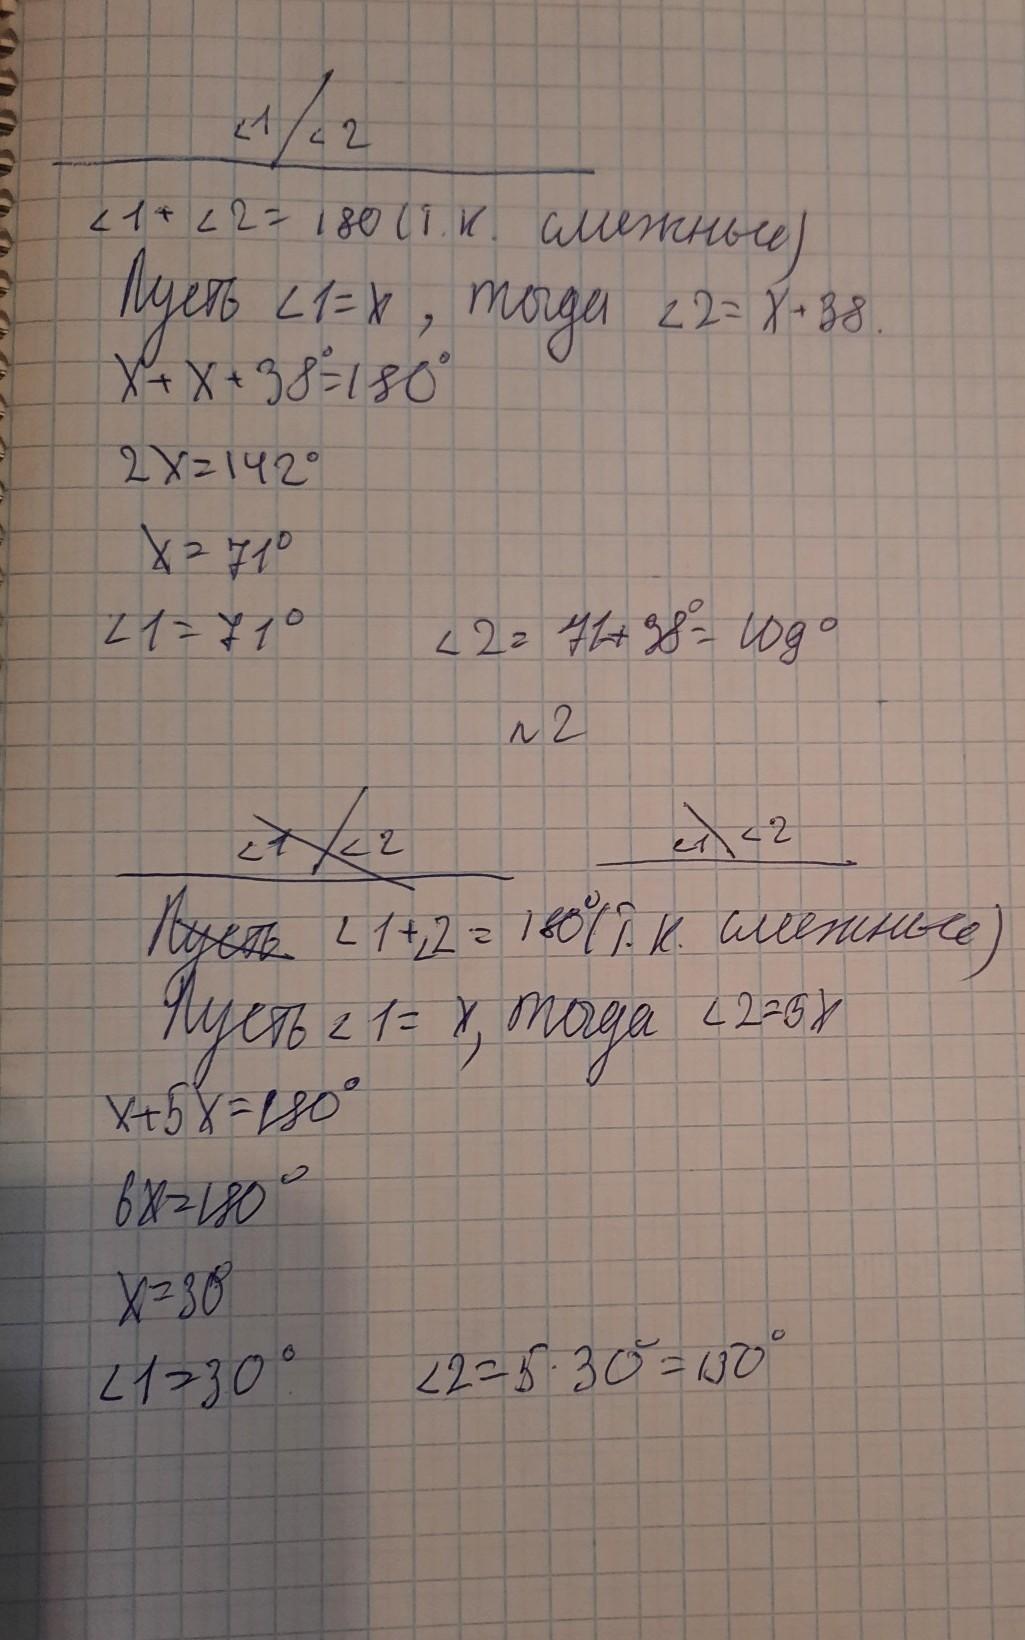 ∠1 ∠2
∠1+ ∠2= 180 (т.к. смежные)
Пусть ∠1=x, тогда ∠2= x+38.
x+x+38°=180°
2x=142°
x=71°
∠1=71° ∠2= 71+38°=109°
№2
∠1 ∠2 ∠1 ∠2
Пусть ∠1+∠2=180°(т.к. смежные)
Пусть ∠1= x, тогда ∠2=5x
x+5x=180°
6x=180°
x=30°
∠1=30° ∠2=5·30°=150°